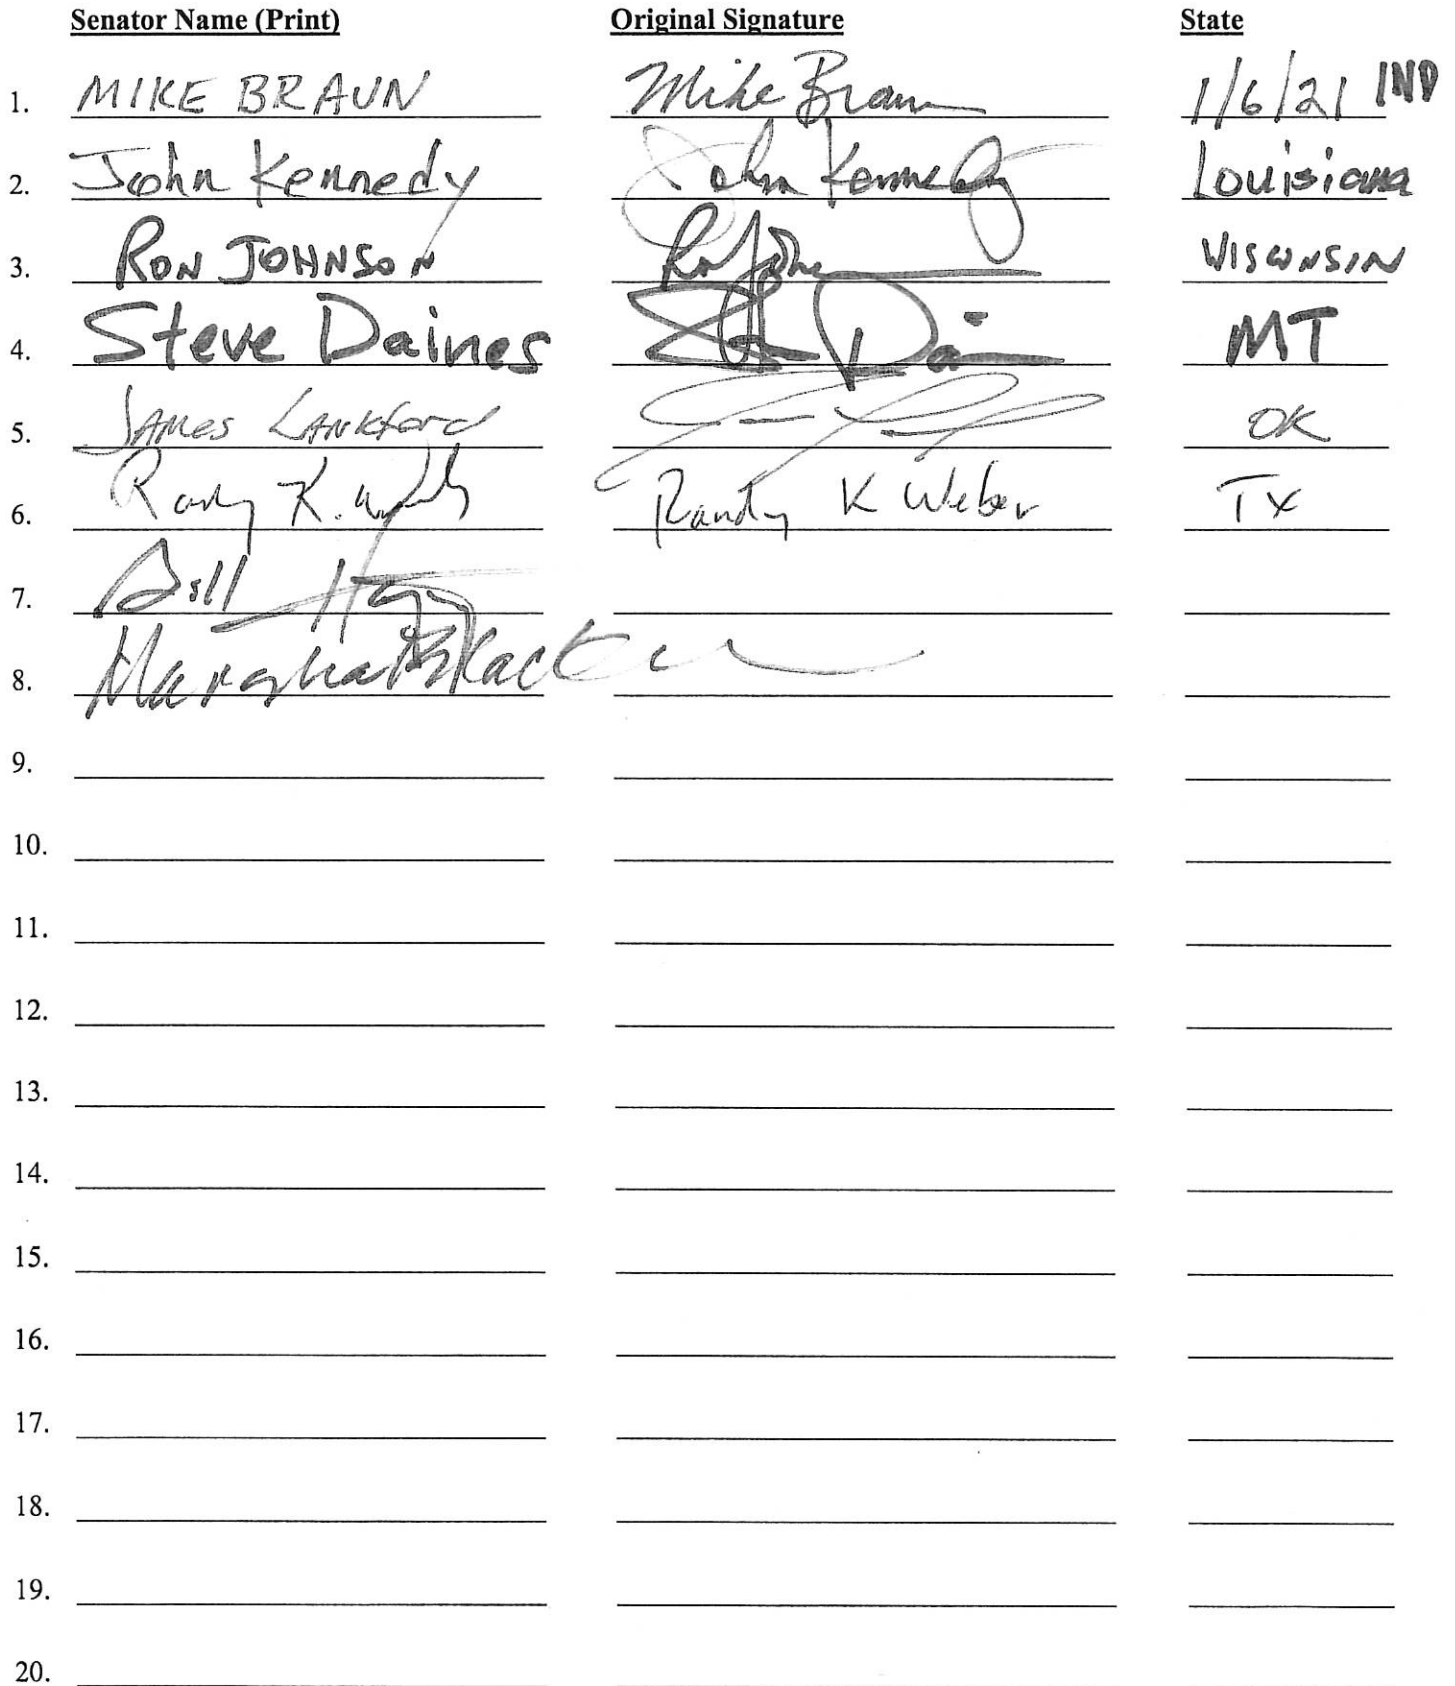 Senator Name (Print) Original Signature State
1. MIKE BRAUN Mike Braun 1/6/21 IND
2. John Kennedy John Kennedy Louisiana
3. RON JOHNSON Ron Johnson WISCONSIN
4. Steve Daines Steve Daines MT
5. JAMES LANKFORD OK
6. Randy K. Weber Randy K Weber TX
7. Bill
8. Marsha Blackburn
9.
10.
11.
12.
13.
14.
15.
16.
17.
18.
19.
20.